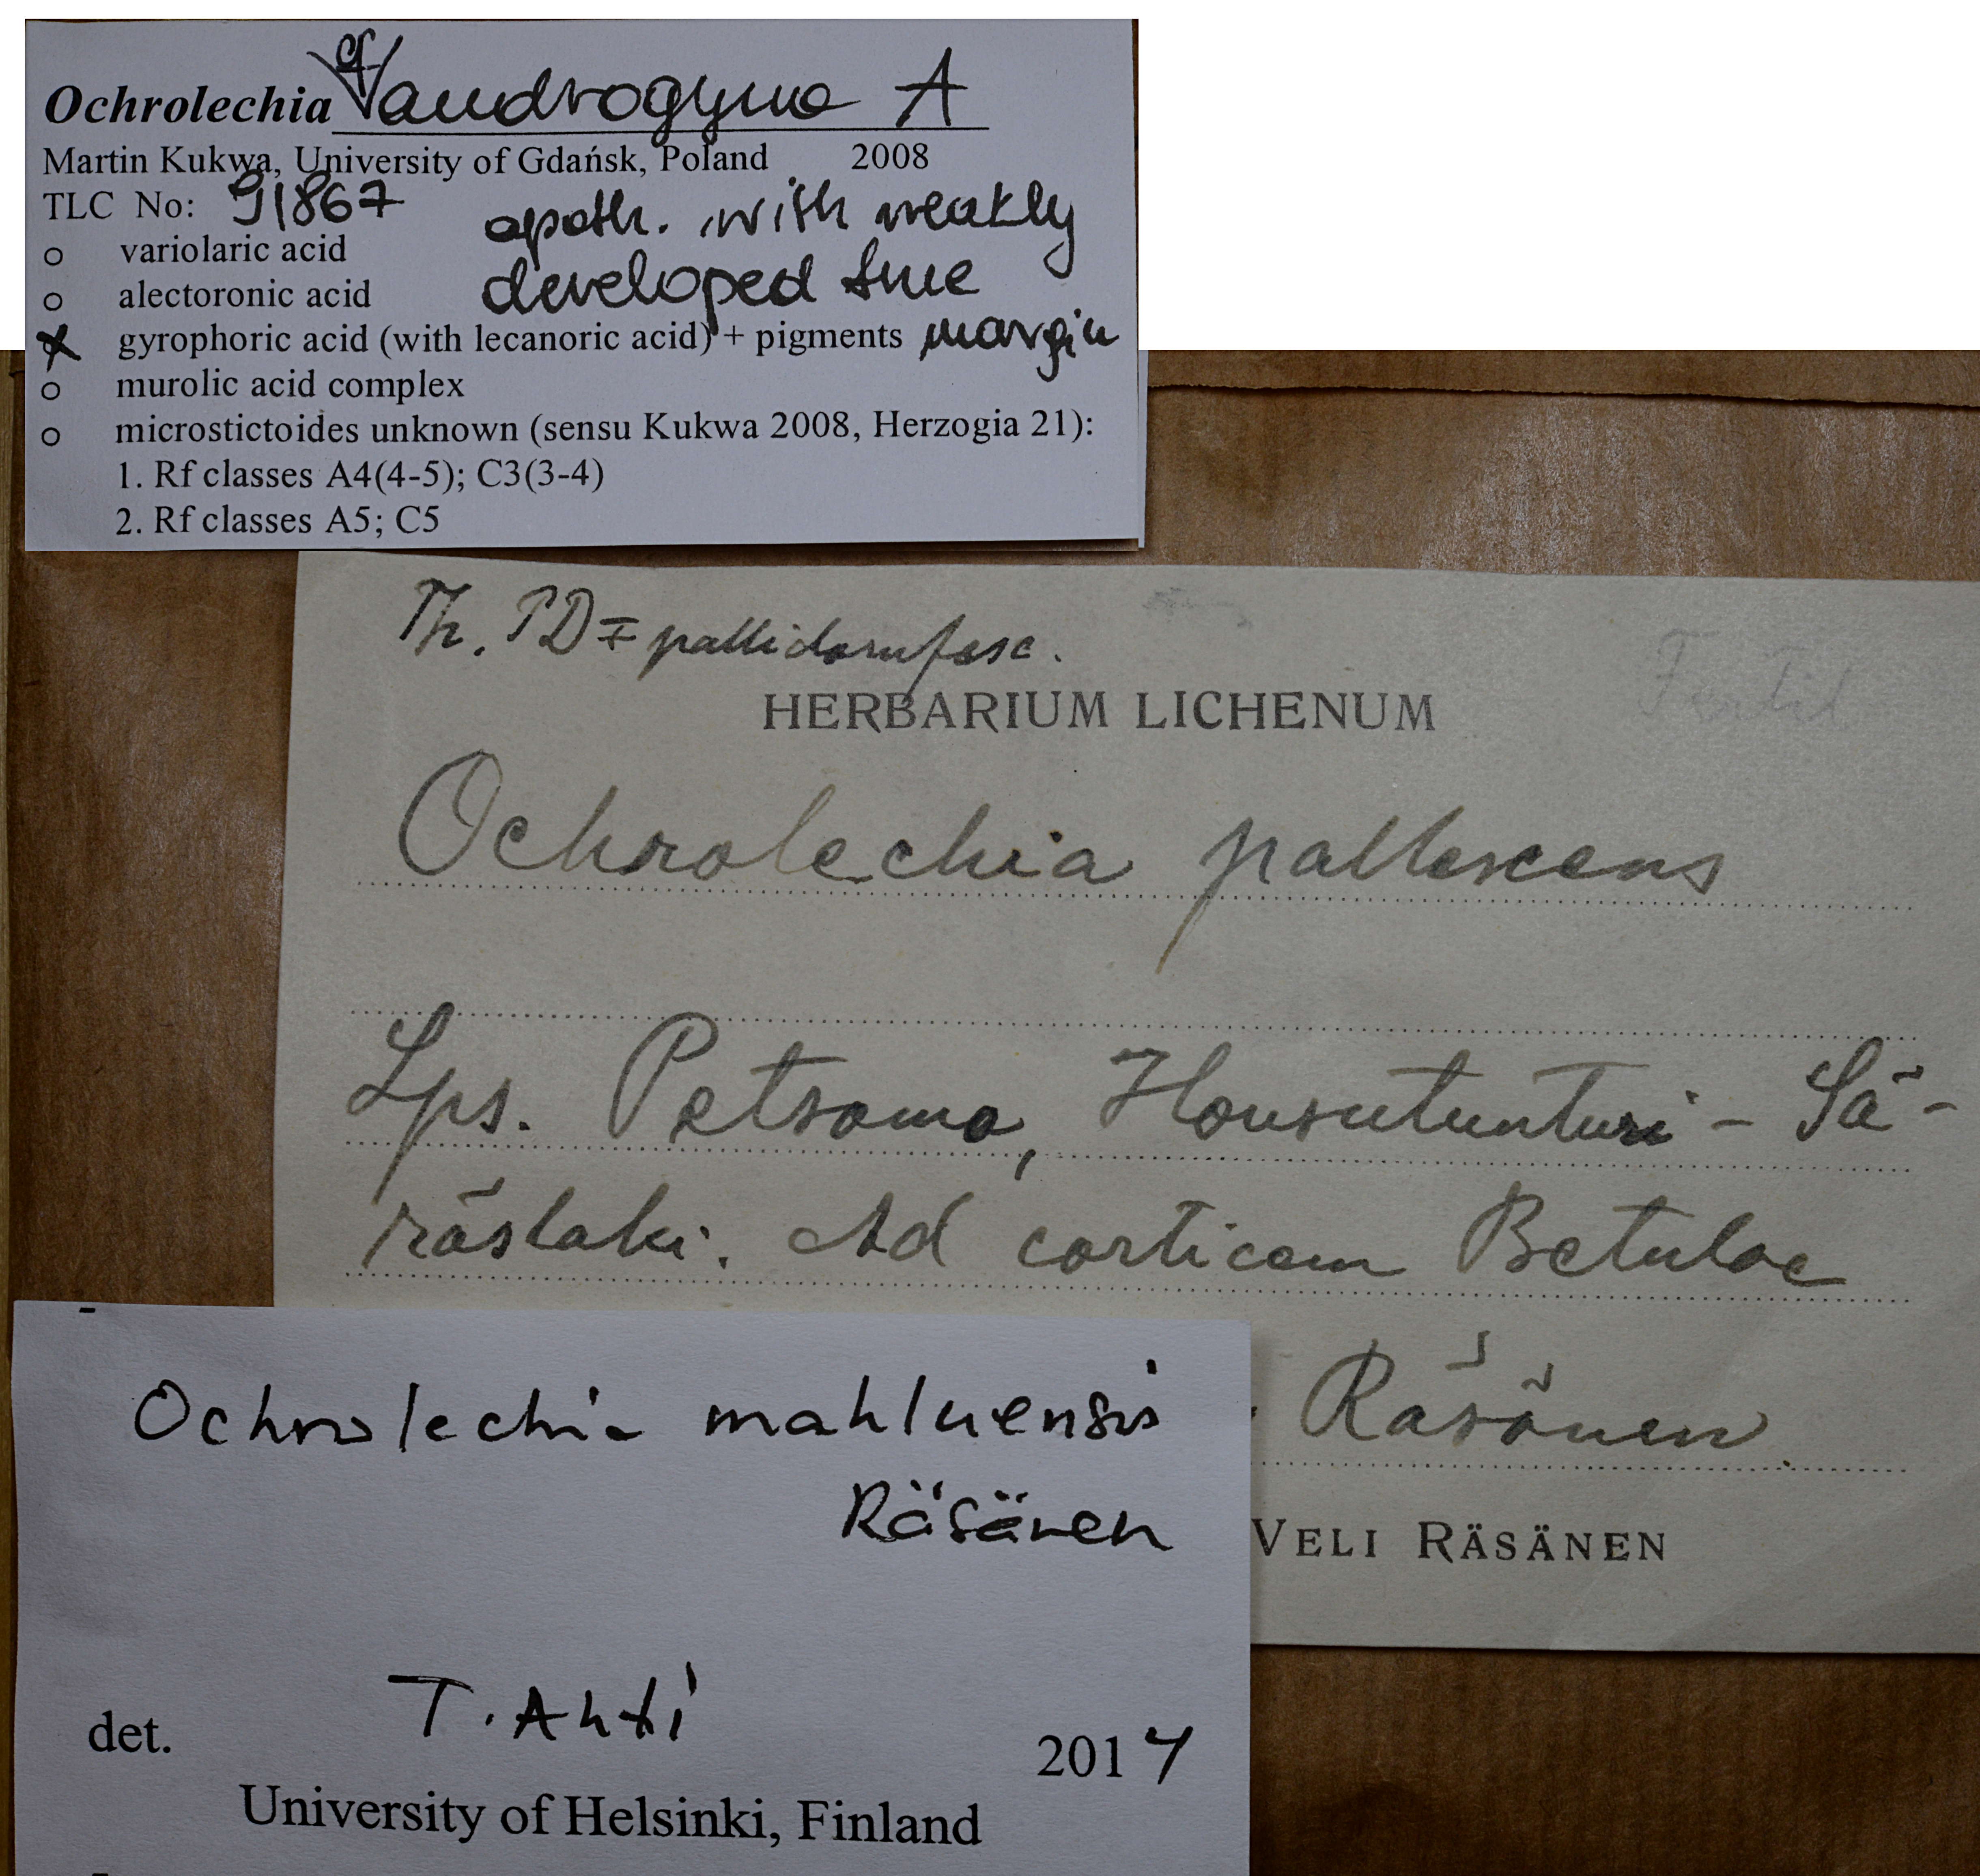 Ochrolechia cf androgyna A
Martin Kukwa, University of Gdańsk, Poland 2008
TLC No: 91867
apoth. with weakly
developed true
margin
o variolaric acid
o alectoronic acid
x gyrophoric acid (with lecanoric acid) + pigments
o murolic acid complex
o microstictoides unknown (sensu Kukwa 2008, Herzogia 21):
1. Rf classes A4(4-5); C3(3-4)
2. Rf classes A5; C5
Th. PD ∓ pallidorufesc.
HERBARIUM LICHENUM
Fertil
Ochrolechia pallescens
Lps. Petsamo, Housutunturi - Sä-
räslaki. Ad corticem Betulae
Räsänen
VELI RÄSÄNEN
Ochrolechia mahluensis
Räsänen
det. T. Ahti
2014
University of Helsinki, Finland